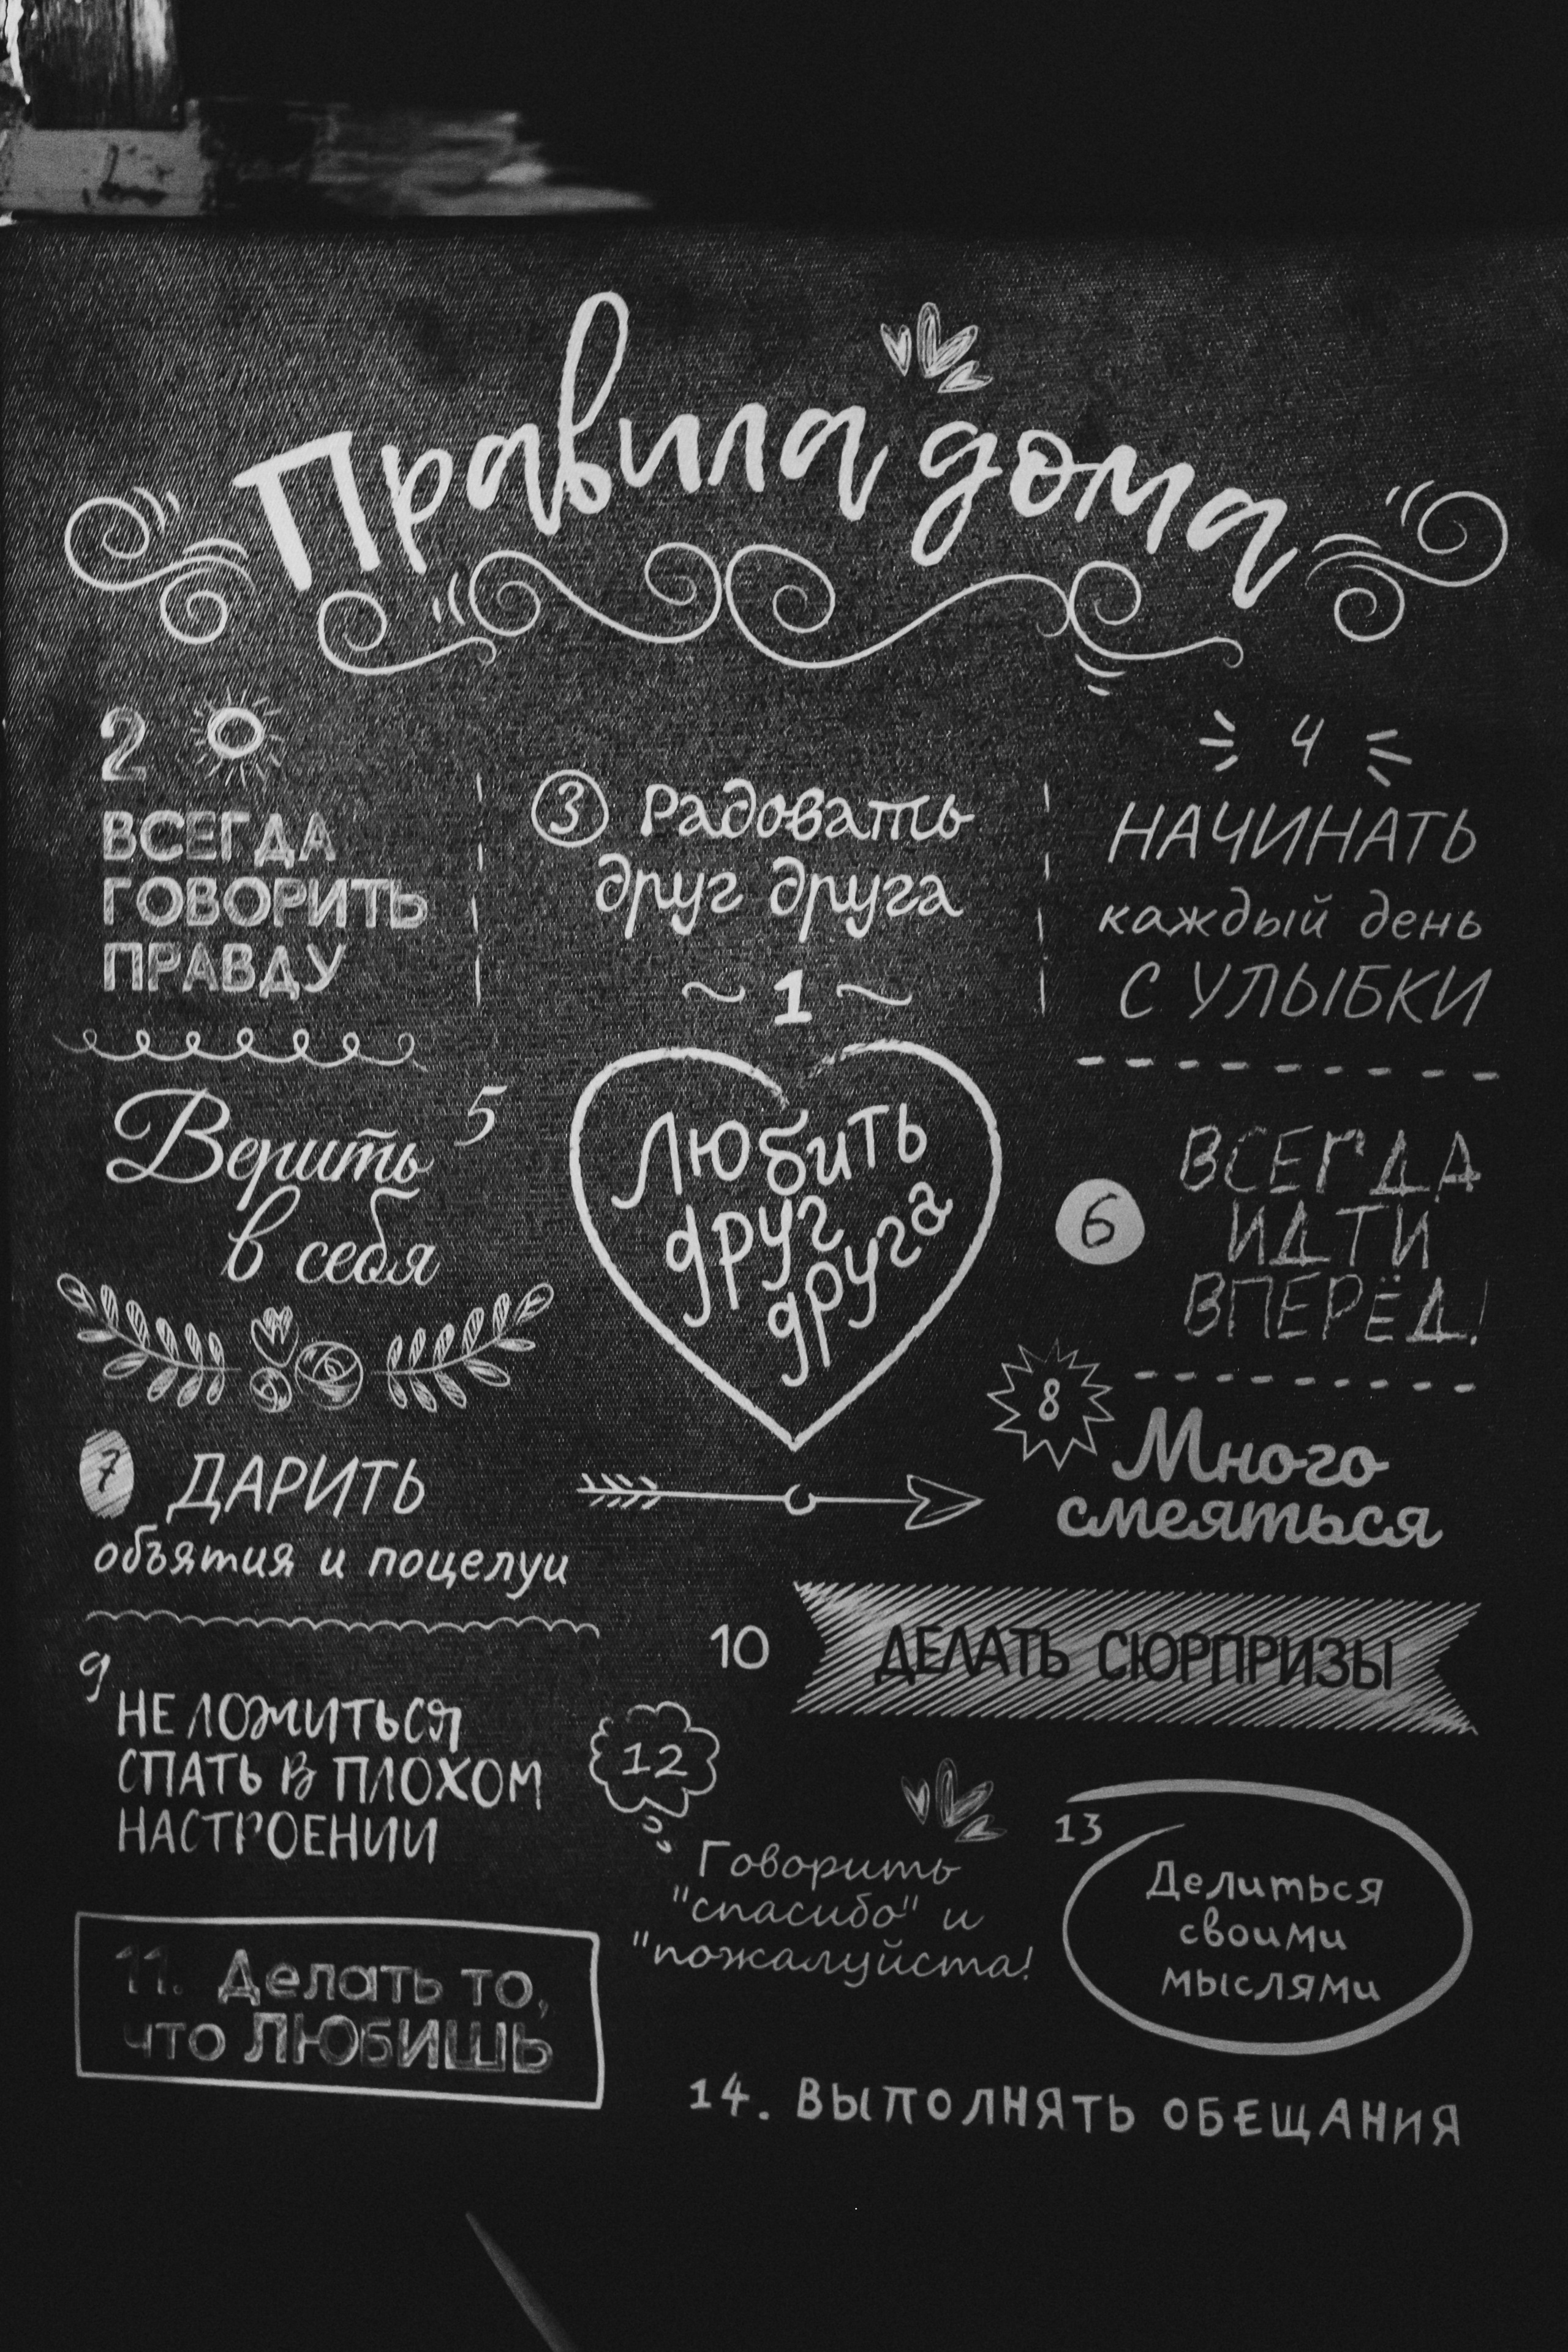 Правила дома
2
ВСЕГДА
ГОВОРИТЬ
ПРАВДУ
3 Радовать
друг друга
4
НАЧИНАТЬ
каждый день
С УЛЫБКИ
~ 1 ~
Любить
друг
друга
5
Верить
в себя
6
ВСЕГДА
ИДТИ
ВПЕРЁД!
7 ДАРИТЬ
объятия и поцелуи
8
Много
смеяться
9
НЕ ЛОЖИТЬСЯ
СПАТЬ В ПЛОХОМ
НАСТРОЕНИИ
10 ДЕЛАТЬ СЮРПРИЗЫ
11. Делать то,
что ЛЮБИШЬ
12
Говорить
"спасибо" и
"пожалуйста!
13
Делиться
своими
мыслями
14. ВЫПОЛНЯТЬ ОБЕЩАНИЯ